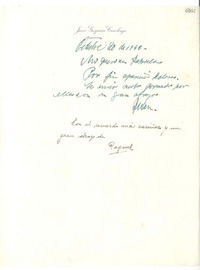 Juan Guzmán Cruchaga
Octubre 20 de 1948.
Mi querida Gabriela:
Por fin apareció Dolores.
Te envío
por
ella con un gran abrazo
Juan.
Con el recuerdo más cariñoso y un
gran abrazo de
Raquel